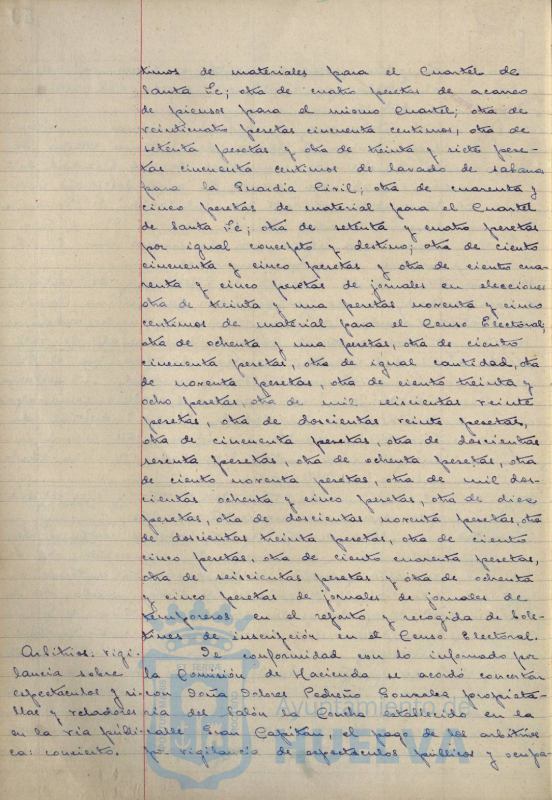 timos de materiales para el Cuartel de
Santa Fe; otra de cuatro pesetas de acarreo
de piensos para el mismo Cuartel; otra de
veinticuatro pesetas cincuenta centimos, otra de
setenta pesetas y otra de treinta y siete pese-
tas cincuenta centimos de lavado de sabanas
para la Guardia Civil; otra de cuarenta y
cinco pesetas de material para el Cuartel
de Santa Fe; otra de setenta y cuatro pesetas
por igual concepto y destino; otra de ciento
cincuenta y cinco pesetas y otra de ciento cua-
renta y cinco pesetas de jornales en elecciones
otra de treinta y una pesetas noventa y cinco
centimos de material para el Censo Electoral;
otra de ochenta y una pesetas, otra de ciento
cincuenta pesetas, otra de igual cantidad, otra
de noventa pesetas, otra de ciento treinta y
ocho pesetas, otra de mil seiscientas veinte
pesetas, otra de doscientas veinte pesetas,
otra de cincuenta pesetas, otra de doscientas
sesenta pesetas, otra de ochenta pesetas, otra
de ciento noventa pesetas, otra de mil dos-
cientas ochenta y cinco pesetas, otra de diez
pesetas, otra de doscientas noventa pesetas, otra
de doscientas treinta pesetas, otra de ciento
cinco pesetas, otra de ciento cuarenta pesetas,
otra de seiscientas pesetas y otra de ochenta
y cinco pesetas de jornales de jornales de
temporeros en el reparto y recogida de bole-
tines de inscripción en el Censo Electoral.
Arbitrios: vigi-
lancia sobre
espectaculos y si-
llas y veladores
en la via públi-
ca: concierto.
De conformidad con lo informado por
la Comisión de Hacienda se acordó concertar
con Doña Dolores Pedreño Gonzalez propieta-
ria del Salón La Concha establecido en la
calle Gran Capitán, el pago de los arbitrios
por vigilancia de espectaculos públicos y ocupa-
Ayuntamiento de
HUELVA